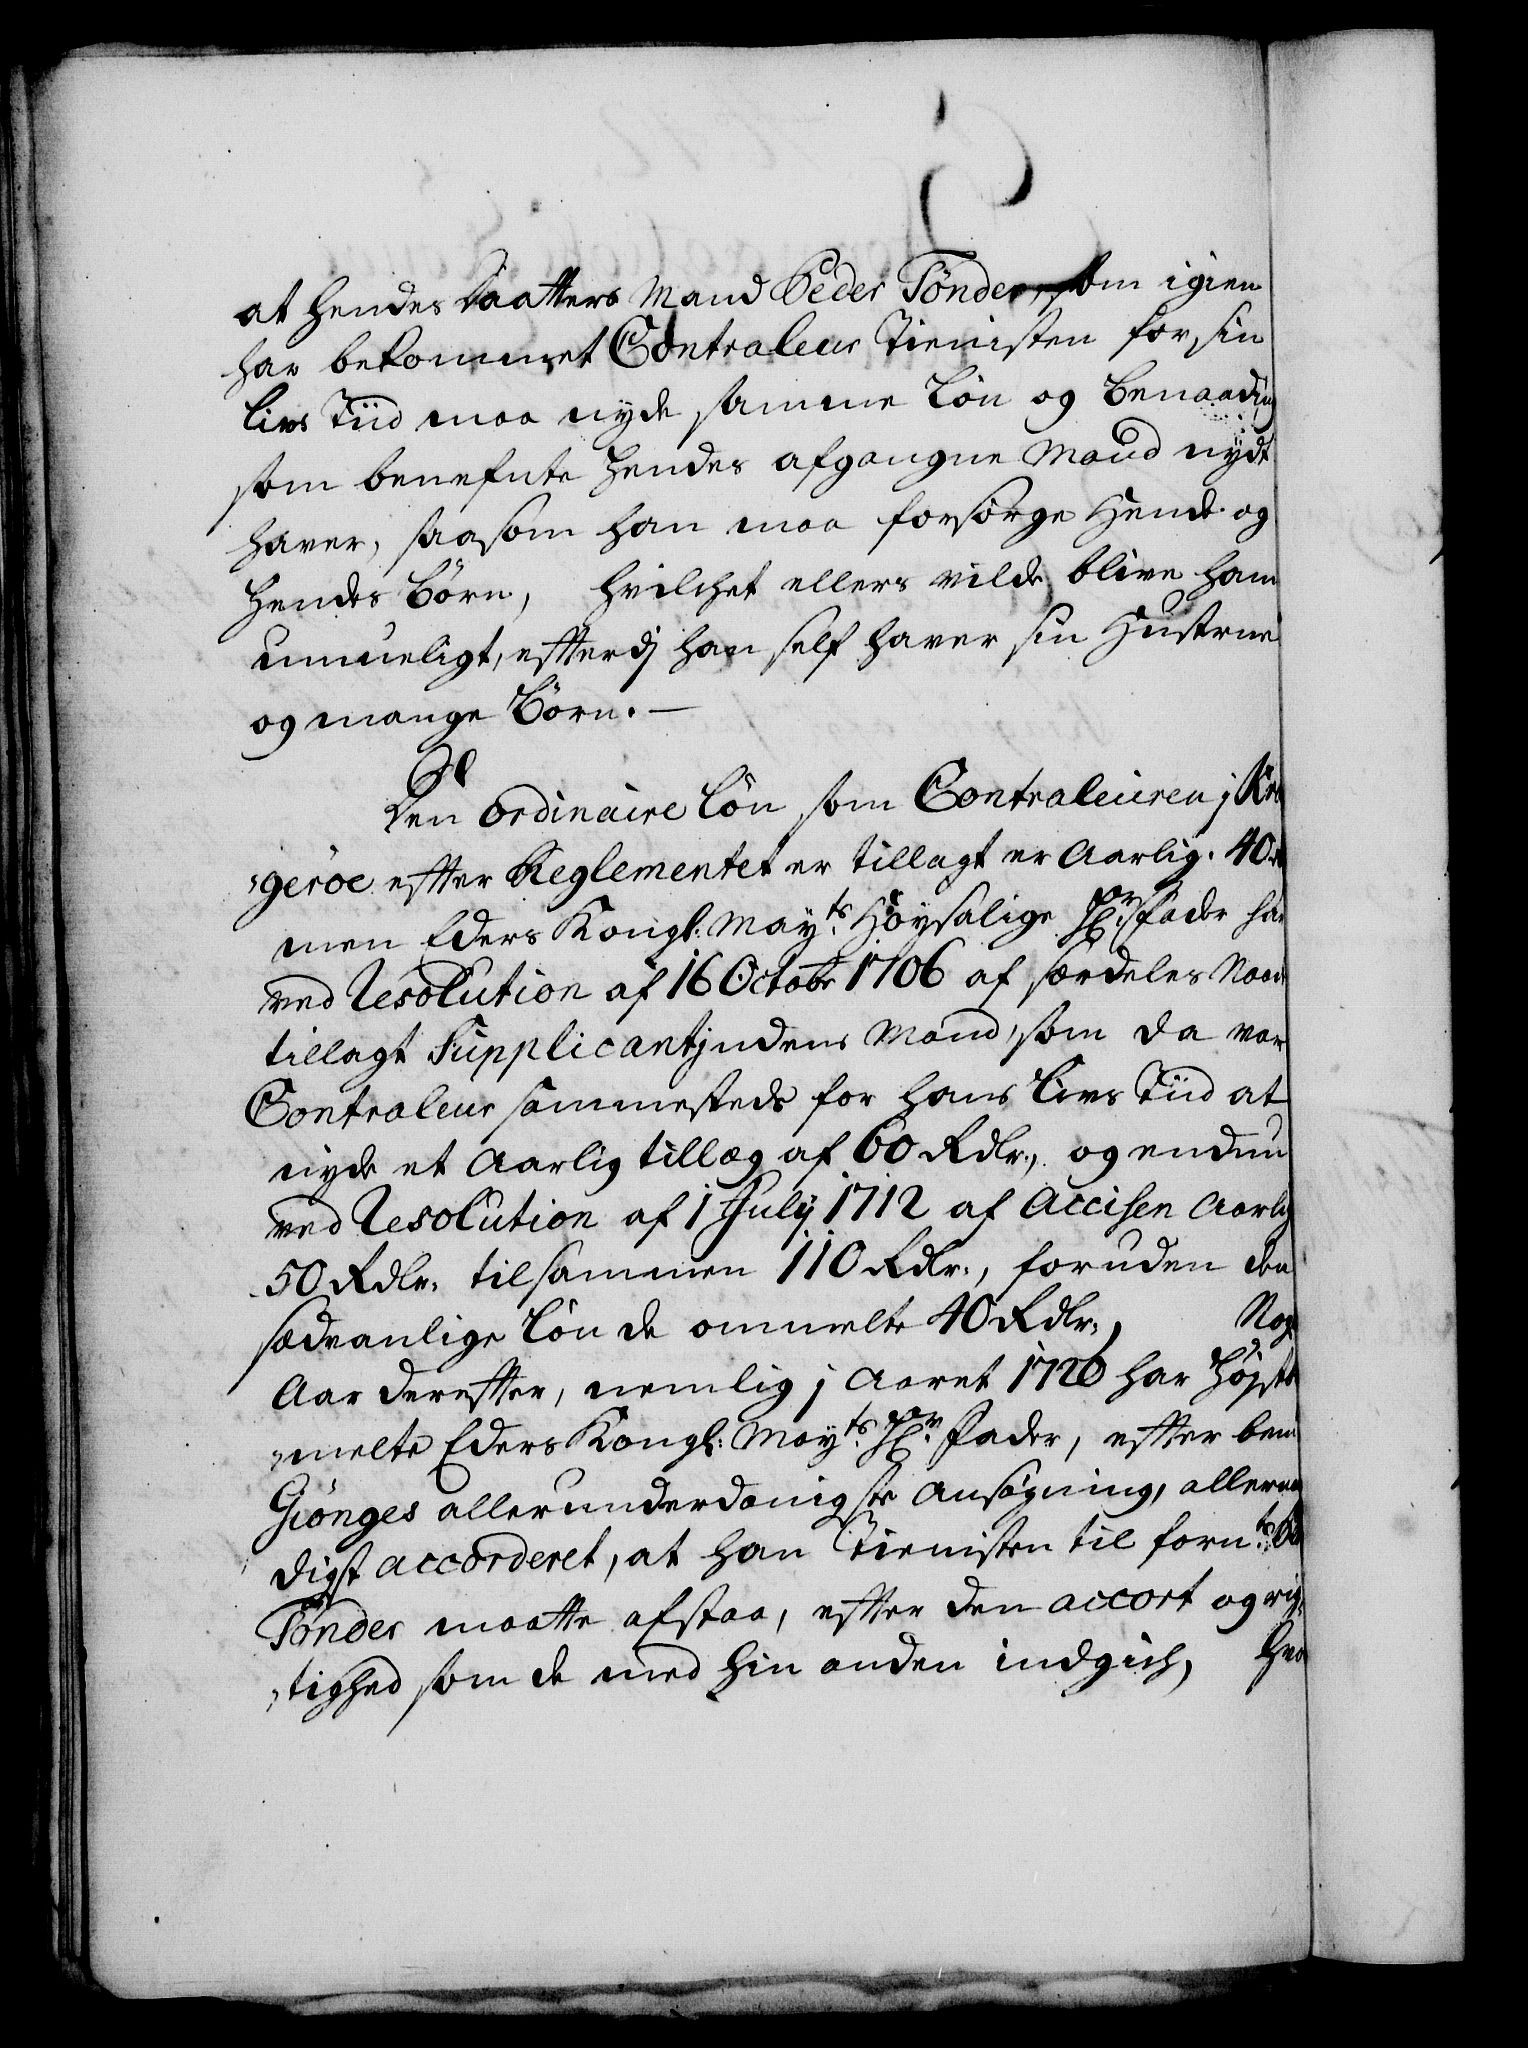 at hendes Daatters Mand Peder Tönder, som igien
har bekommet Contraleur Tienisten for sin
Livs Tiid maa nyde samme Lön og Benaading
som benefnte hendes afgangne Mand nydt
haver, saasom han maa forsörge Hende og
hendes Börn, hvilchet ellers vilde blive ham
umueligt, efterdj han self haver sin Hustrue
og mange Börn. —
Den ordinaire Lön som Contraleuren j Kra
"geröe efter Reglementet er tillagt er Aarlig. 40
men Eders Kongl: May.ts Höysalige Hr. Fader har
ved Resolution af 16 Octobr 1706 af særdeles Naade
tillagt Supplicantjndens Mand, som da var
Contraleur sammesteds for hans Livs Tiid at
nyde et Aarlig tillæg af 60 Rdlr., og endnu
ved Resolution af 1 July 1712 af Accisen Aarlig
50 Rdlr. tilsammen 110 Rdlr., foruden den
sædvanlige Lön de ommelte 40 Rdlr.,
Aar derefter, nemlig j Aaret 1726 har Höjst
"melte Eders Kongl: May.ts Hr. Fader, efter bem
Giönges allerunderdanigste Ansögning, allernaa
digst accorderet, at han Tienisten til forn.te
Tönder maatte afstaa, efter den accort og rig,
"tighed som de med hin anden indgich, hvo